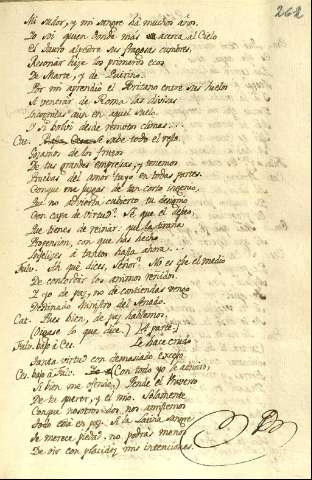 262
Mi sudor, y mi sangre ha muchos años.
Yo soi quien donde mas acerca al Cielo
El Tauro alpestre sus fragosas cumbres,
Resonar hize los primeros ecos
De Marte, y de Quirino.
Por mi aprendio el Britano entre sus yelos
A venerar de Roma las divisas
Incognitas aun en aquel suelo.
Y si bolví desde remotos climas...
Ces. se sabe todo el resto.
Gozamos de los frutos
De tus grandes empresas, y tenemos
Pruebas del amor tuyo en todas partes.
Conque me juzgas de tan corto ingenio,
Que no advierta cubierto tu designio
Con capa de virtud? Sé que el deseo,
Que tienes de reinar: que la tirana
Propension, con que has hecho
Infelizes á tantos hasta ahora...
Fulv. Ah qué dices, Señor? No es ese el medio
De concordar los animos reñidos.
Y yo de paz, no de contiendas vengo
Destinado Ministro del Senado.
Cat. Pues bien, de paz hablemos.
(Oigase lo que dice.) [Al parte.]
Fulv. bajo á Ces. Le hace crudo
Tanta virtud con demasiado exceso.
Ces. bajo á Fulv. (Con todo yo le admiro,
Si bien me ofende.) Pende el Universo
De tu querer, y el mio. Solamente
Conque nosotros dos nos amistemos
Todo está en paz. Si la Latina sangre
Te merece piedad, no podrás menos
De oir con placidez mis intenciones.